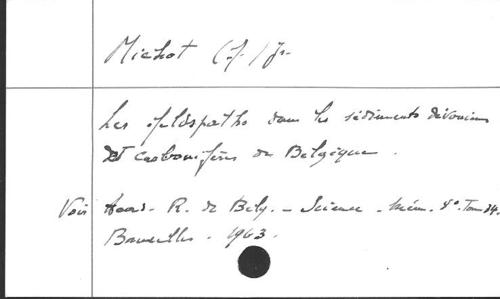 Michot (J.) Jr
Les feldspaths dans les sédiments dévoniens
et carbonifères de Belgique.
Voir Acad. R. de Belg. - Science - Mém. 4°. Tom 34.
Bruxelles. 1963.